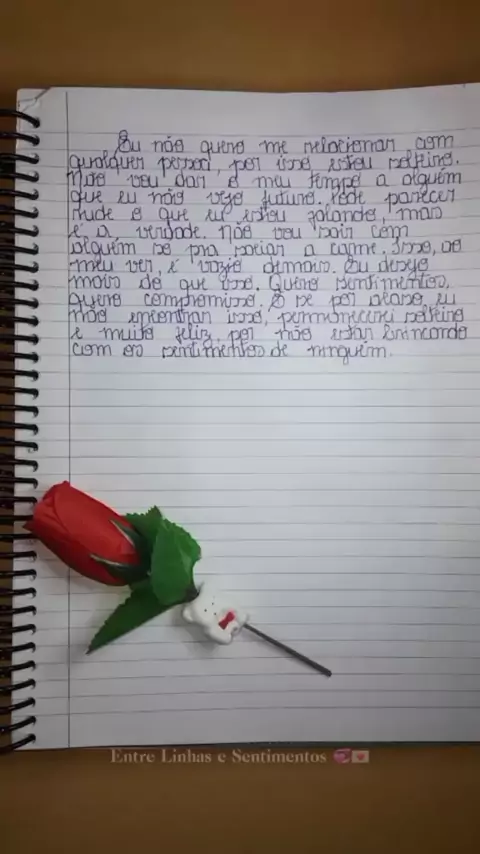 Eu não quero me relacionar com
qualquer pessoa, por isso estou solteiro.
Não vou dar o meu tempo a alguém
que eu não vejo futuro. Pode parecer
rude o que eu estou falando, mas
é a verdade. Não vou sair com
alguém só pra saciar a carne. Isso, ao
meu ver, é vazio demais. Eu desejo
mais do que isso. Quero sentimentos,
quero compromisso. E se por acaso, eu
não encontrar isso, permanecerei solteiro
e muito feliz, por não estar brincando
com os sentimentos de ninguém.
Entre Linhas e Sentimentos 💞💌